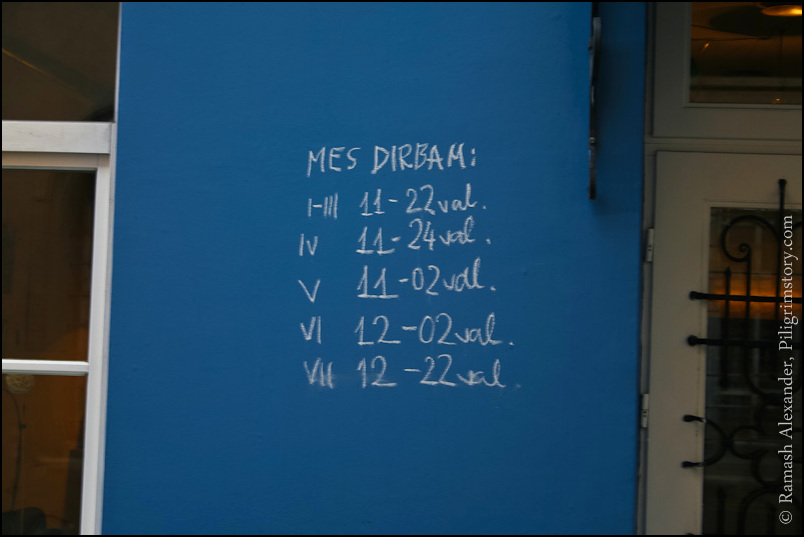 MES DIRBAM:
I-III 11-22val.
IV 11-24val.
V 11-02val.
VI 12-02val.
VII 12-22val.
© Ramash Alexander, Piligrimstory.com